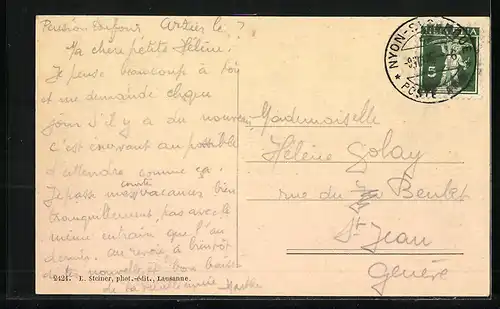 Pension Dufour Arzier le 7
Ma chère petite Hélène!
Je pense beaucoup à toi
et me demande chque
jour s'il y a du nouveau
c'est enervant au possible
d'attendre comme ça.
Je passe mes courtes vacances bien
tranquillement, pas avec le
même entrain que l'an
dernier. au revoir à bientôt
de tes nouvelles, et bon baiser
de ta
Marthe
2424. L. Steiner, phot.-édit., Lausanne.
NYON-ST-
POSTE
5
Mademoiselle
Hélène Golay
rue du
St Jean
Genève